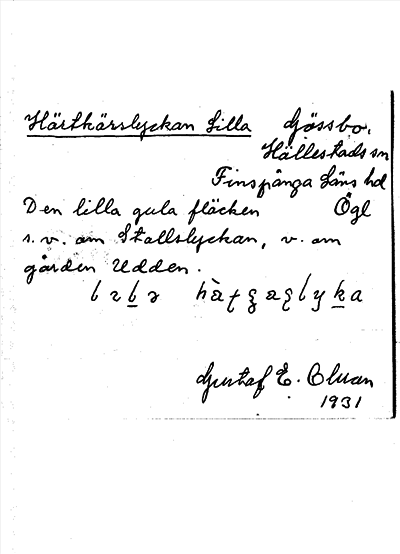 Härkärslyckan Lilla Gössbo,
Hällestads sn
Finspånga Läns hd
Den lilla gula fläcken Ögl
s.v. om Stallslyckan, v. om
gården Udden.
Gustaf E.
1931